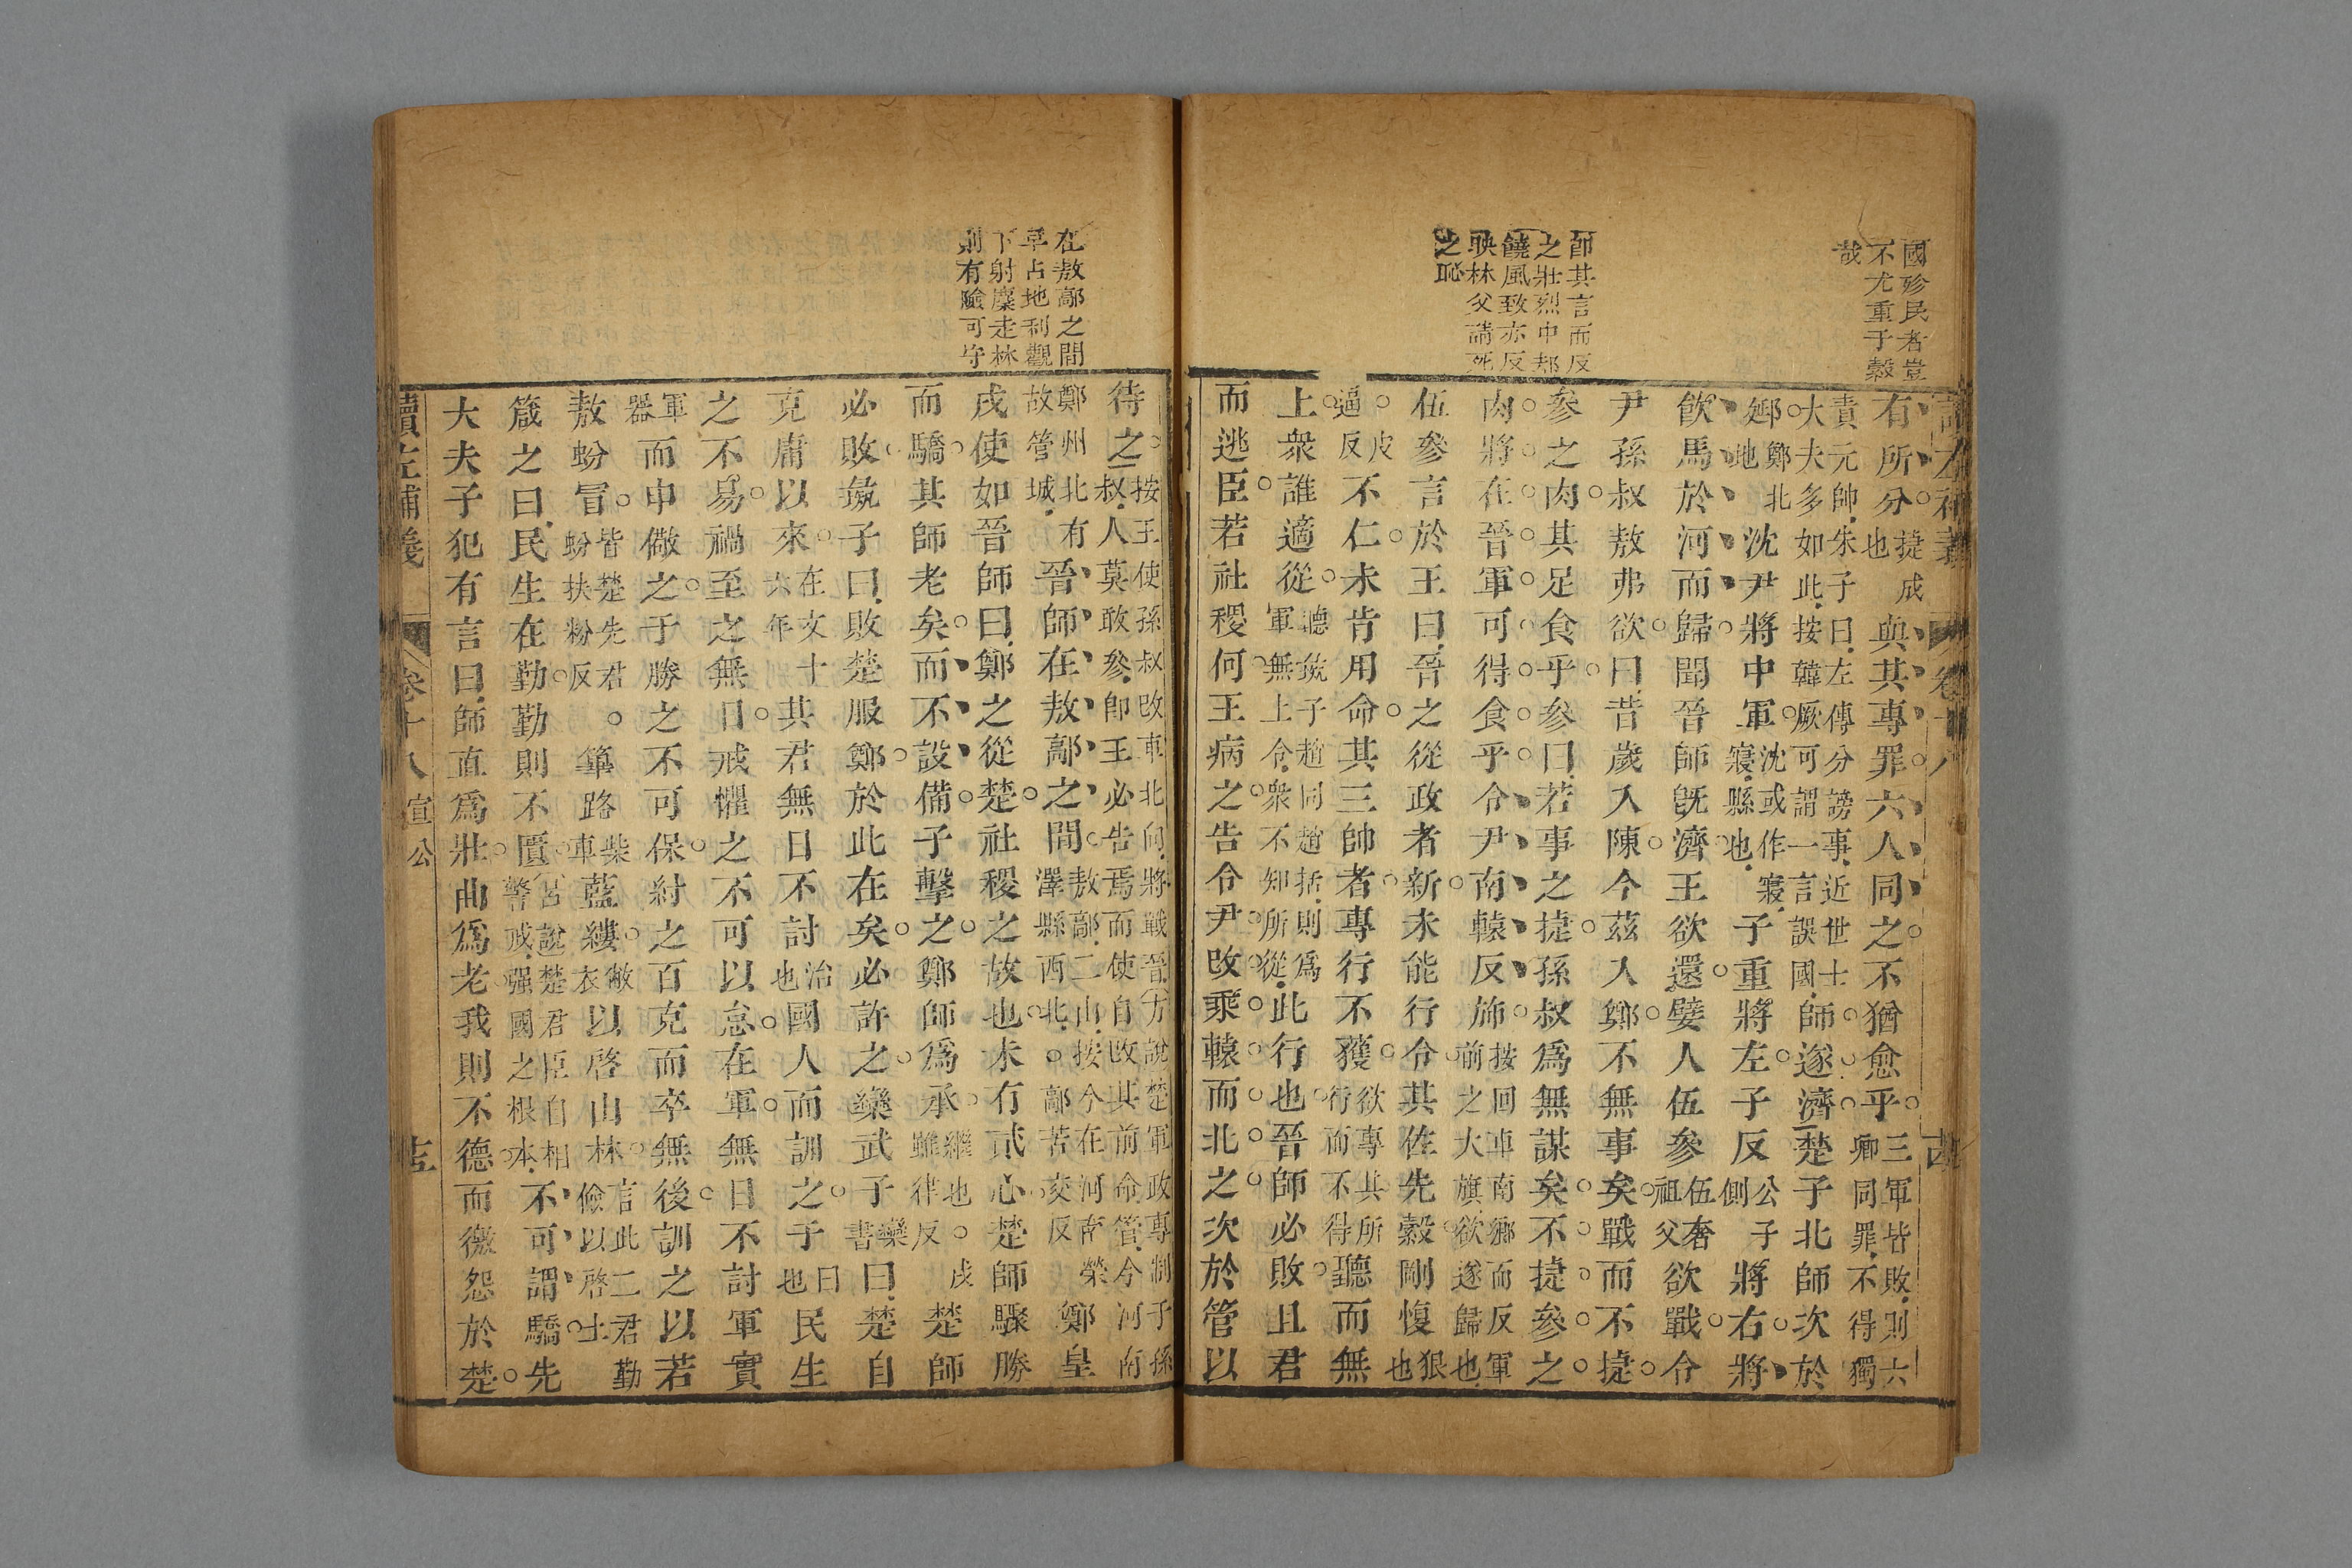 國殄民者豈
不尤重于縠
哉
即其言而反
之壯烈中却
饒風致亦反
映林父請死
之恥
讀左補義 卷十八 古
有所分捷成也與其專罪六人同之不猶愈乎三軍皆敗則六卿同罪不得獨
責元帥朱子曰左傳分謗事近世士大夫多如此按韓厥可謂一言誤國師遂濟楚子北師次於
郔鄭北地沈尹將中軍沈或作寢寢縣也子重將左子反公子側將右將
飲馬於河而歸聞晉師旣濟王欲還嬖人伍參伍奢祖父欲戰令
尹孫叔敖弗欲曰昔歲入陳今茲入鄭不無事矣戰而不捷
參之肉其足食乎參曰若事之捷孫叔爲無謀矣不捷參之
肉將在晉軍可得食乎令尹南轅反旆按回車南鄉而反軍前之大旗欲遂歸也
伍參言於王曰晉之從政者新未能行令其佐先縠剛愎狠也
皮逼反不仁未肯用命其三帥者專行不獲欲專其所行而不得聽而無
上衆誰適從聽彘子趙同趙括則爲軍無上令衆不知所從此行也晉師必敗且君
而逃臣若社稷何王病之告令尹改乘轅而北之次於管以
在敖鄗之間
早占地利觀
下射麋走林
則有險可守
待之按王使孫叔改車北向將戰晉方說楚軍政專制子孫叔人莫敢參卽王必告焉而使自改其前命管今河南
鄭州北有故管城晉師在敖鄗之間敖鄗二山按今在河南滎澤縣西北鄗苦交反鄭皇
戌使如晉師曰鄭之從楚社稷之故也未有貳心楚師驟勝
而驕其師老矣而不設備子擊之鄭師爲承繼也戌雖律反楚師
必敗彘子曰敗楚服鄭於此在矣必許之欒武子欒書曰楚自
克庸以來在文十六年其君無日不討治也國人而訓之于曰也民生
之不易禍至之無日戒懼之不可以怠在軍無日不討軍實
軍器而申儆之于勝之不可保紂之百克而卒無後訓之以若
敖蚡冒皆楚先君蚡扶粉反篳路柴車藍縷敝衣以啓山林言此二君勤儉以啓土
箴之曰民生在勤勤則不匱宮說楚君臣自相警戒强國之根本不可謂驕先
大夫子犯有言曰師直爲壯曲爲老我則不德而徼怨於楚
讀左補義 卷十八 宣公 古